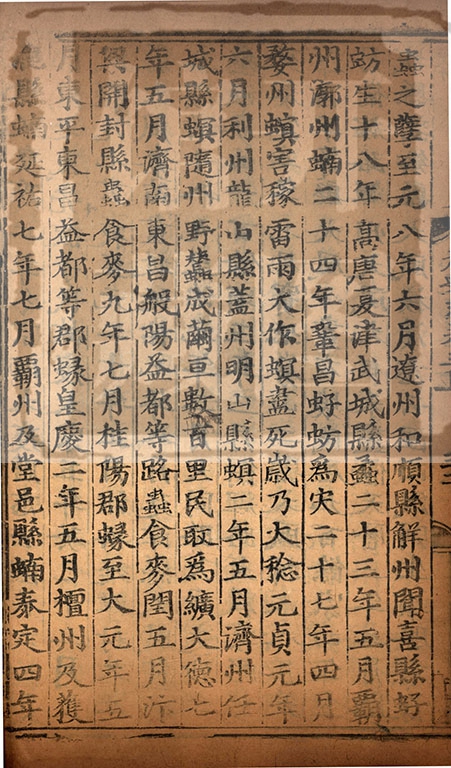 蟲之孽至元八年六月遼州和順縣解州聞喜縣虸
蚄生十八年高唐夏津武城縣蟊二十三年五月霸
州漷州蝻二十四年鞏昌虸蚄爲灾二十七年四月
婺州螟害稼雷雨大作螟盡死歲乃大稔元貞元年
六月利州龍山縣蓋州明山縣螟二年五月濟州任
城縣螟隨州野蠶成繭亘數百里民取爲纊大德七
年五月濟南東昌般陽益都等路蟲食麥閏五月汴
興開封縣蟲食麥九年七月桂陽郡蝝至大元年五
月東平東昌益都等郡蝝皇慶二年五月檀州及獲
鹿縣蝻延祐七年七月霸州及堂邑縣蝻泰定四年